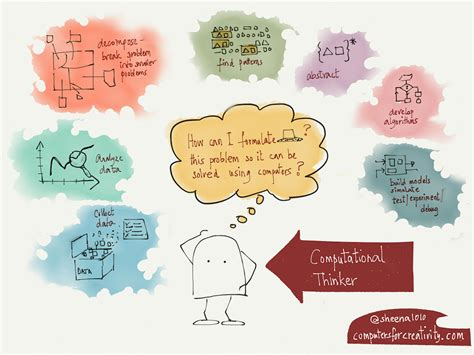 decompose-
break problem
into smaller
problems
find patterns
{▲□}*
abstract
develop
algorithms
analyze
data
How can I formulate
this problem so it can be
solved using computers?
?
build models
simulate
test/experiment/
debug
Collect
data
DATA
Computational
Thinker
@sheena1010
computersforcreativity.com